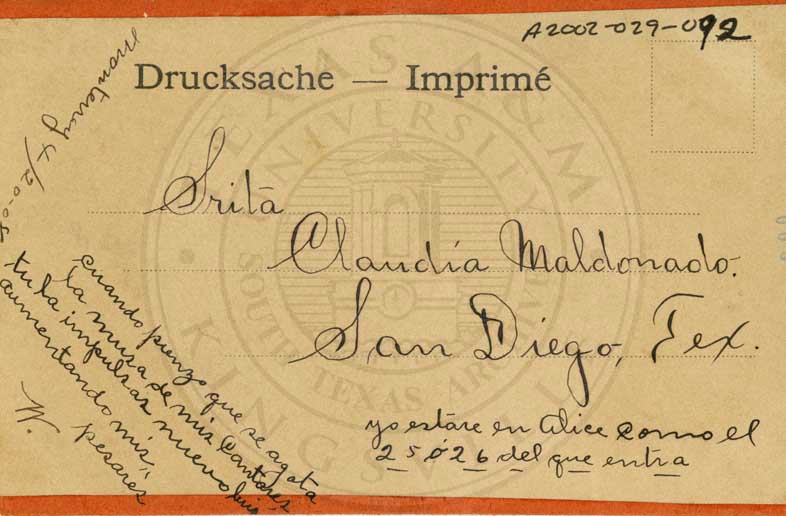 A2002-029-092
Drucksache — Imprimé
Monterrey 4/20-05
Srita
Claudia Maldonado.
San Diego, Tex.
yo estare en Alice como el
25 ó 26 del que entra
cuando pienzo que se agota
la musa de mis Cantares,
tu la impulsas nuevo
aumentando mis
pesares
TEXAS A&M UNIVERSITY KINGSVILLE
SOUTH TEXAS